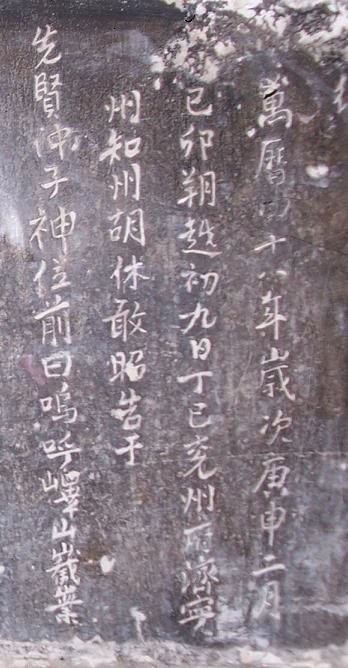 萬曆四十八年歲次庚申二月
己卯朔越初九日丁巳兗州府濟寧
州知州胡休敢昭告于
先賢仲子神位前曰嗚呼嶧山巀嶪